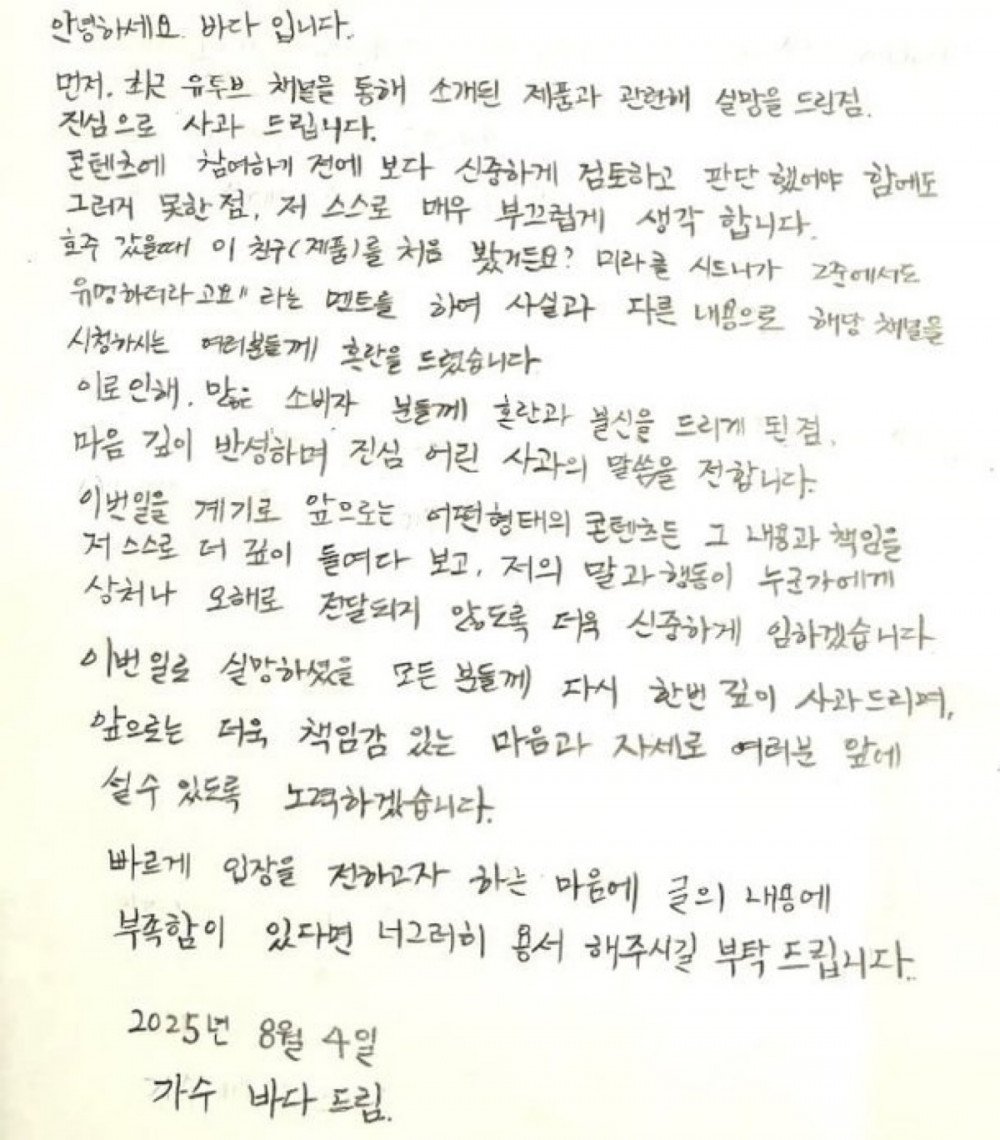 안녕하세요. 바다 입니다.
먼저, 최근 유투브 채널을 통해 소개된 제품과 관련해 실망을 드린점.
진심으로 사과 드립니다.
콘텐츠에 참여하기 전에 보다 신중하게 검토하고 판단 했어야 함에도
그러지 못한 점, 저 스스로 매우 부끄럽게 생각 합니다.
호주 갔을때 이 친구(제품)를 처음 봤거든요? 미라클 시드니가 그중에서도
유명하더라고요" 라는 멘트를 하여 사실과 다른 내용으로 해당 채널을
시청하시는 여러분들께 혼란을 드렸습니다
이로인해, 많은 소비자 분들께 혼란과 불신을 드리게 된 점,
마음 깊이 반성하며 진심 어린 사과의 말씀을 전합니다.
이번일을 계기로 앞으로는 어떤형태의 콘텐츠든 그 내용과 책임을
저 스스로 더 깊이 들여다 보고, 저의 말과 행동이 누군가에게
상처나 오해로 전달되지 않도록 더욱 신중하게 임하겠습니다
이번 일로 실망하셨을 모든 분들께 다시 한번 깊이 사과드리며,
앞으로는 더욱 책임감 있는 마음과 자세로 여러분 앞에
설수 있도록 노력하겠습니다.
빠르게 입장을 전하고자 하는 마음에 글의 내용에
부족함이 있다면 너그러히 용서 해주시길 부탁 드립니다.
2025년 8월 4일
가수 바다 드림.